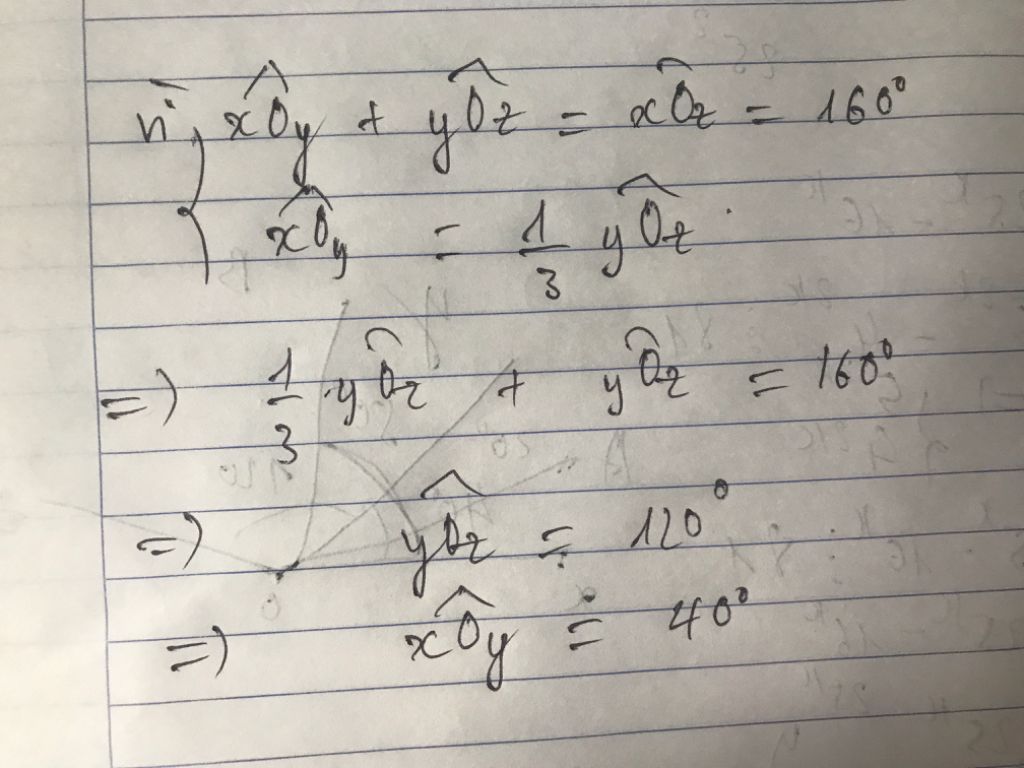 vì xOy + yOz = xOz = 160°
{ xOy = 1/3 yOz
=> 1/3 . yOz + yOz = 160°
=> yOz = 120°
=> xOy = 40°